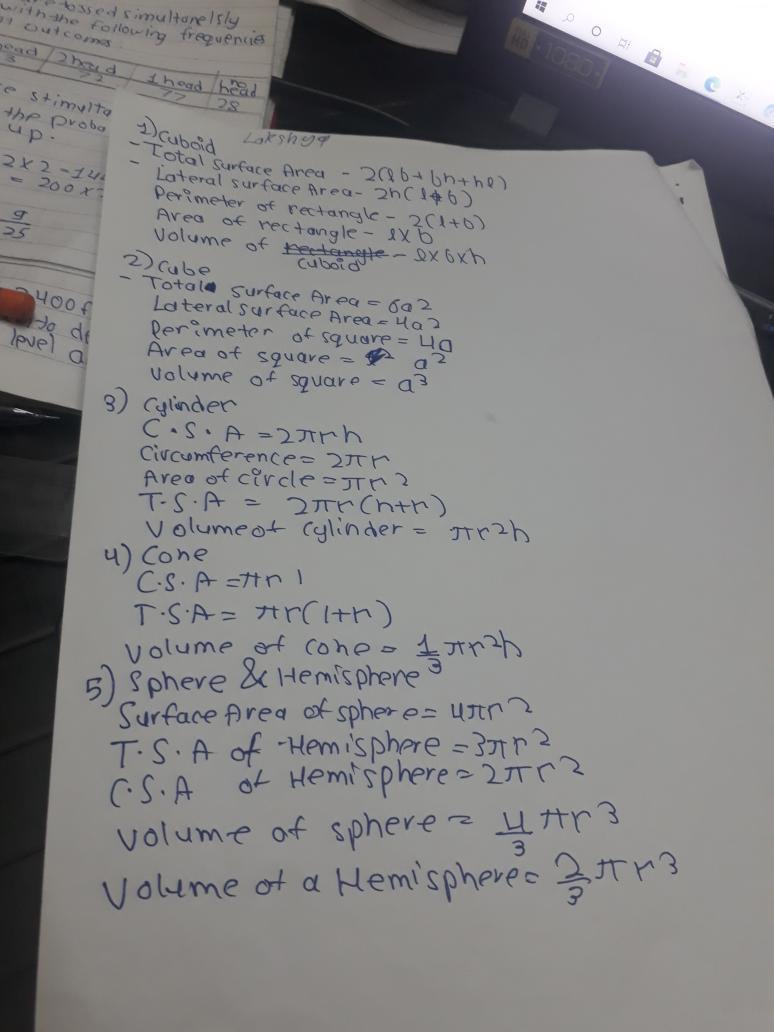 tossed simultanelsly
with the following frequencies
outcomes
head
3
2head
72
1head
77
no head
28
e stimulta
the proba
up.
2 x 2 - 14
= 200 x
9
25
2400
to de
level a
HD 1080
1) Cuboid Lakshya
- Total surface Area - 2(lb + bh + hl)
- Lateral surface Area - 2h(l+b)
Perimeter of rectangle - 2(l+b)
Area of rectangle - l×b
Volume of rectangle cuboid - l×b×h
2) Cube
- Total surface Area = 6a2
Lateral surface Area = 4a2
Perimeter of square = 4a
Area of square = a2
Volume of square = a3
3) Cylinder
C.S.A = 2πrh
Circumference = 2πr
Area of circle = πr2
T.S.A = 2πr(h+r)
Volume of Cylinder = πr2h
4) Cone
C.S.A = πrl
T.S.A = πr(l+r)
Volume of cone = 1/3 πr2h
5) Sphere & Hemisphere
Surface Area of sphere = 4πr2
T.S.A of Hemisphere = 3πr2
C.S.A of Hemisphere = 2πr2
Volume of sphere = 4/3 πr3
Volume of a Hemisphere = 2/3 πr3